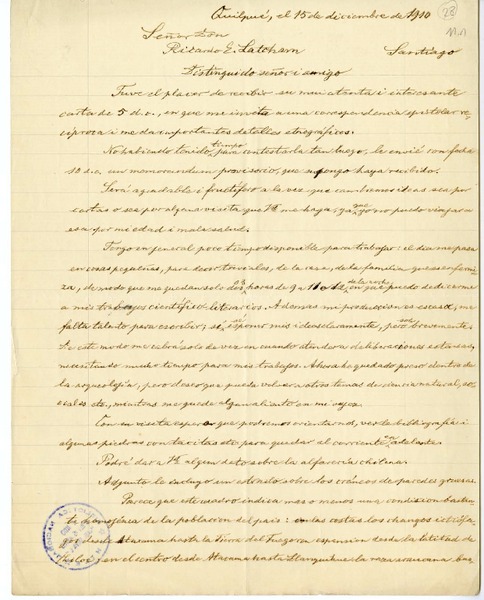 28
Quilpué, el 15 de diciembre de 1910
Señor Don
Ricardo E. Latcham
Santiago
Distinguido señor i amigo
Tuve el placer de recibir su mui atenta i interesante
carta de 5 d. c., en que me invita a una correspondencia epistolar re-
cíproca i me da importantes detalles etnográficos.
No habiendo tenido tiempo para contestarla tan luego, le envié con fecha
10 dic. un memorandum provisorio, que supongo haya recibido.
Será agradable i fructífero a la vez que cambiemos ideas sea por
cartas o sea por alguna visita que Vd me haya; ya que yo no puedo viajar a
esa por mi edad i mala salud.
Tengo en jeneral poco tiempo disponible para trabajar: el dia me pasa
en cosas pequeñas, para decir triviales, de la casa, de la familia que es enfermi-
za, de modo que me quedan solo 2 o 3 horas de 9 a 11 o 12 de la noche, en que puedo dedicarme
a mis trabajos científico-literarios. Ademas mi produccion es escasa, me
falta talento para escribir; sí, espreso mis ideas claramente, pero sea brevemente.
De este modo me cabrá solo de vez en cuando atender a deliberaciones estensas,
necesitando mucho tiempo para mis trabajos. Ahora he quedado preso dentro de
la arqueolojía, pero deseo que pueda volver a otros temas de ciencia natural, so-
ciales etc., mientras me quede algun aliento en mi vejez.
Con su visita espero que podremos orientarnos, ver de bibliografía i
algunas piedras con tacitas etc para quedar al corriente en adelante.
Podré dar a Vd algun dato sobre la alfarería chilena.
Adjunto le incluyo un estracto sobre los cráneos de paredes gruesas.
Parece que este cuadro indica mas o menos una condicion bastan-
te homojénea de la poblacion del pais: en las costas los changos ictiófa-
gos desde Atacama hasta la Tierra del Fuego
en el centro desde Atacama hasta Llanquihue la raza araucana bas-